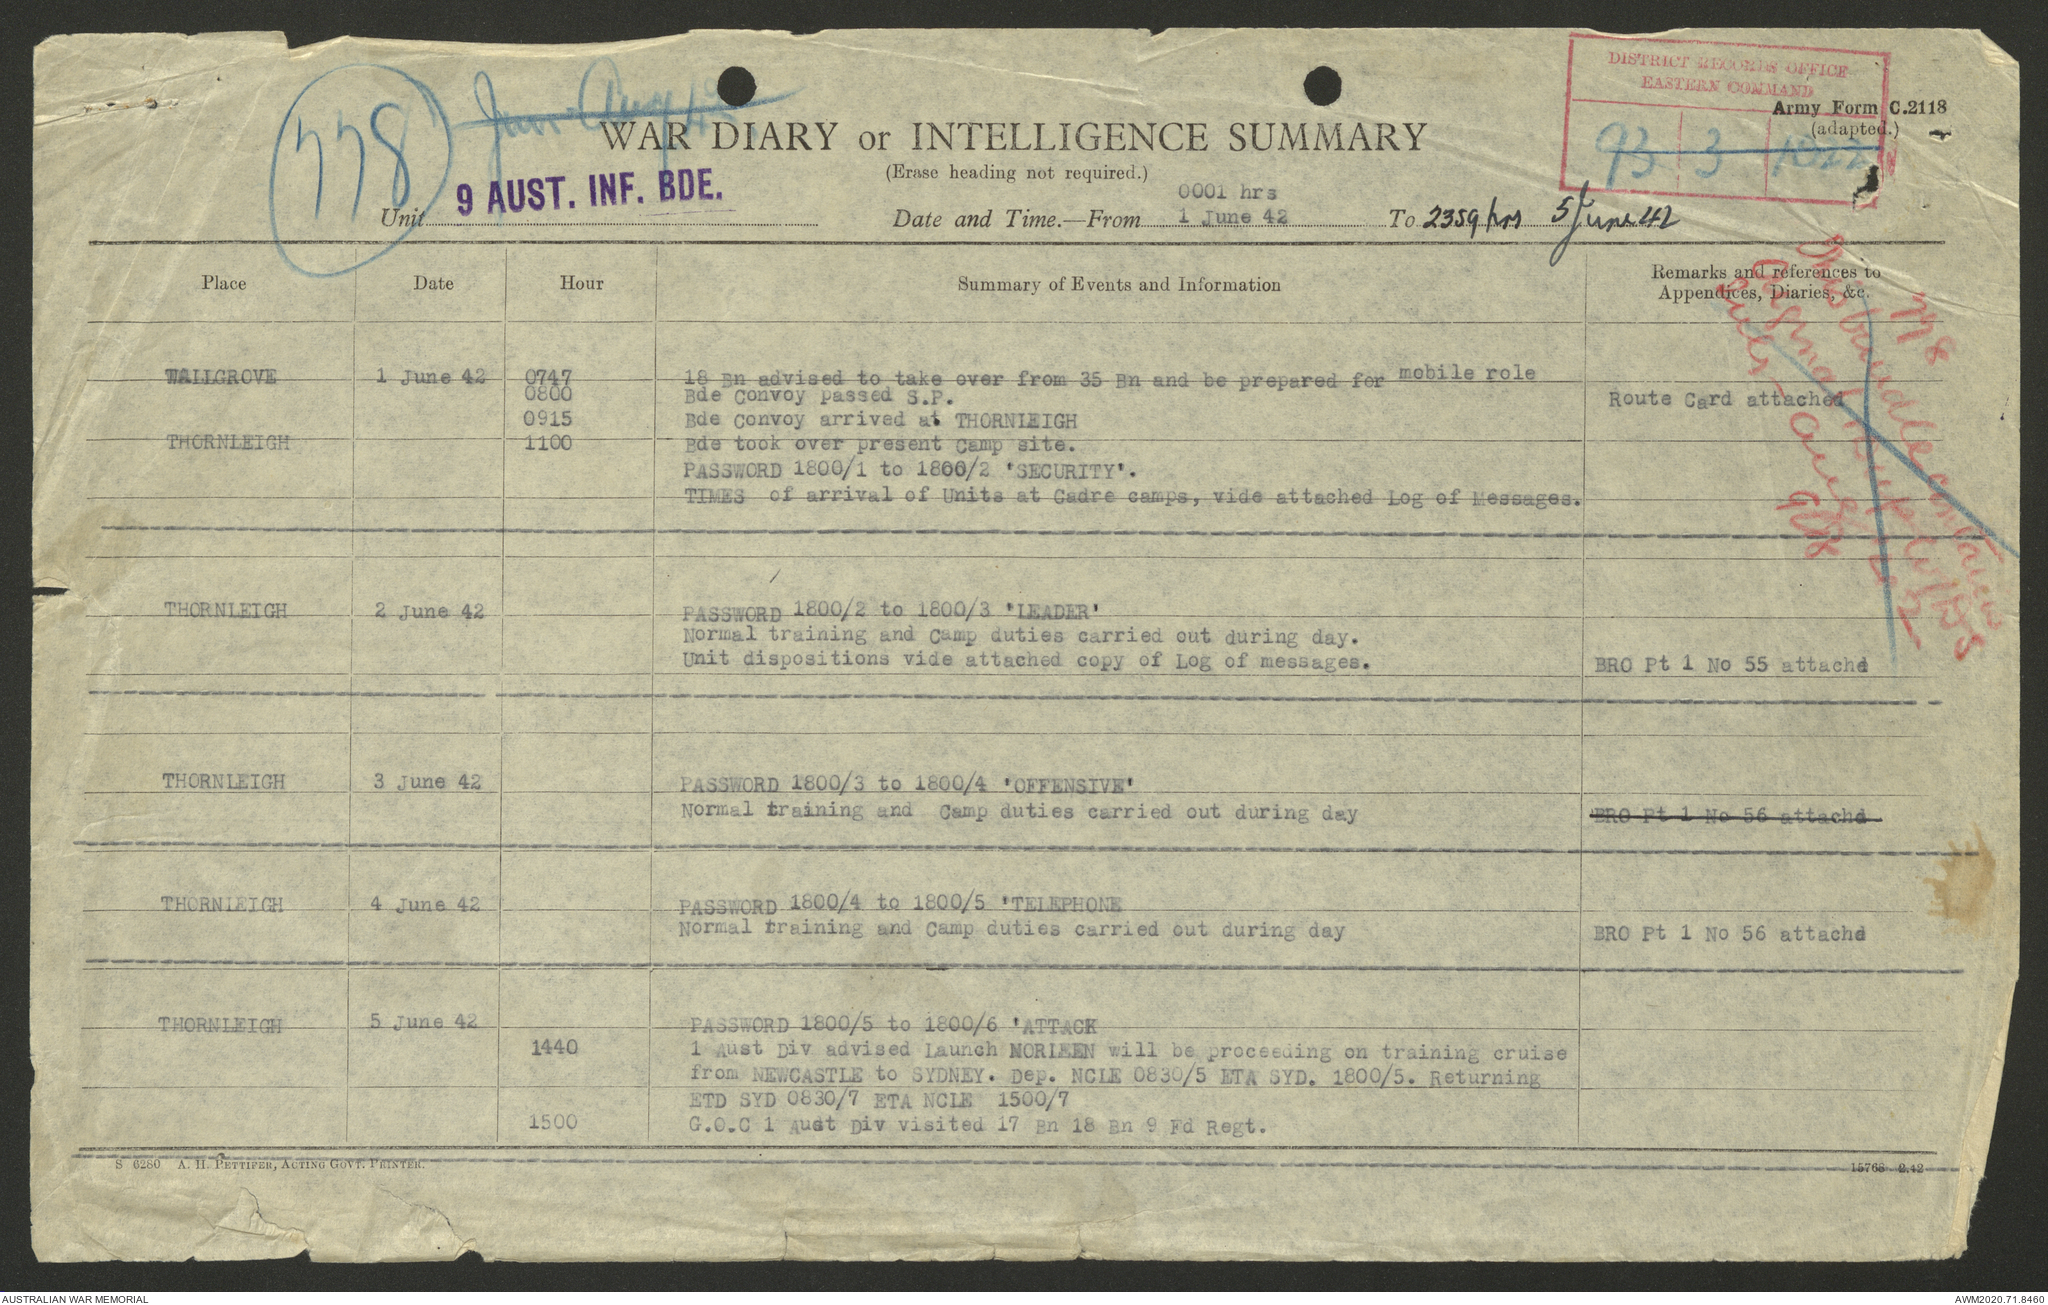 778
June-Aug 42
DISTRICT RECORDS OFFICE
EASTERN COMMAND
93 3
Army Form C.2118
(adapted.)
WAR DIARY or INTELLIGENCE SUMMARY
(Erase heading not required.)
Unit 9 AUST. INF. BDE.
0001 hrs
Date and Time.—From 1 June 42 To 2359 hrs 5 June 42
Place Date Hour Summary of Events and Information Remarks and references to
Appendices, Diaries, &c.
WALLGROVE 1 June 42 0747 18 Bn advised to take over from 35 Bn and be prepared for mobile role
0800 Bde Convoy passed S.P. Route Card attached
0915 Bde Convoy arrived at THORNLEIGH
THORNLEIGH 1100 Bde took over present Camp site.
PASSWORD 1800/1 to 1800/2 'SECURITY'.
TIMES of arrival of Units at Cadre camps, vide attached Log of Messages.
THORNLEIGH 2 June 42 PASSWORD 1800/2 to 1800/3 'LEADER'
Normal training and Camp duties carried out during day.
Unit dispositions vide attached copy of Log of messages. BRO Pt 1 No 55 attachd
THORNLEIGH 3 June 42 PASSWORD 1800/3 to 1800/4 'OFFENSIVE'
Normal training and Camp duties carried out during day BRO Pt 1 No 56 attachd
THORNLEIGH 4 June 42 PASSWORD 1800/4 to 1800/5 'TELEPHONE
Normal training and Camp duties carried out during day BRO Pt 1 No 56 attachd
THORNLEIGH 5 June 42 PASSWORD 1800/5 to 1800/6 'ATTACK
1440 1 Aust Div advised Launch NORLEEN will be proceeding on training cruise
from NEWCASTLE to SYDNEY. Dep. NCLE 0830/5 ETA SYD. 1800/5. Returning
ETD SYD 0830/7 ETA NCLE 1500/7
1500 G.O.C 1 Aust Div visited 17 Bn 18 Bn 9 Fd Regt.
S 6280 A. H. PETTIFER, ACTING GOVT. PRINTER.
15768 2.42
AUSTRALIAN WAR MEMORIAL
AWM2020.71.8460